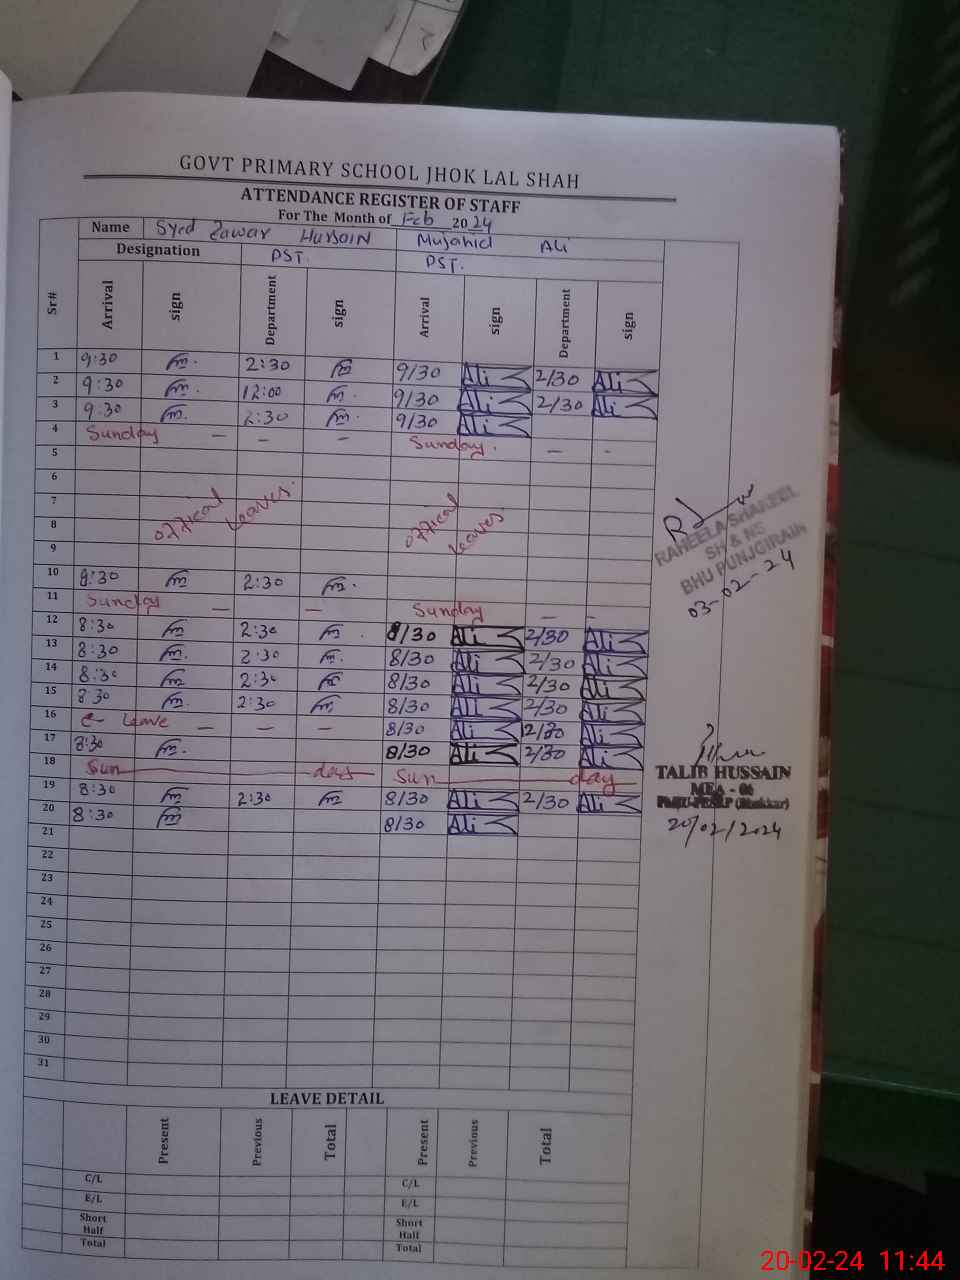 GOVT PRIMARY SCHOOL JHOK LAL SHAH
ATTENDANCE REGISTER OF STAFF
For The Month of Feb 2024
Name Syed Zawar Hussain Mujahid Ali
Designation PST. PST.
Sr# Arrival sign Department sign Arrival sign Department sign
1 9:30 2:30 9/30 Ali 2/30 Ali
2 9:30 12:00 9/30 Ali 2/30 Ali
3 9:30 2:30 9/30 Ali
4 Sunday — — — Sunday. — -
5
6
7 offical leaves. offical leaves
8
9
10 9:30 2:30
11 Sunday — — Sunday — -
12 8:30 2:30 8/30 Ali 2/30 Ali
13 8:30 2:30 8/30 Ali 2/30 Ali
14 8:30 2:30 8/30 Ali 2/30 Ali
15 8:30 2:30 8/30 Ali 2/30 Ali
16 C- Leave — — — 8/30 Ali 2/30 Ali
17 8:30 8/30 Ali 2/30 Ali
18 Sun days Sun day
19 8:30 2:30 8/30 Ali 2/30 Ali
20 8:30 8/30 Ali
21
22
23
24
25
26
27
28
29
30
31
RAHEELA SHAKEEL
SH & NS
BHU PUNJGIRAIN
03-02-24
TALIB HUSSAIN
MEA - 06
20/02/2024
LEAVE DETAIL
Present Previous Total Present Previous Total
C/L C/L
E/L E/L
Short Short
Half Half
Total Total
20-02-24 11:44